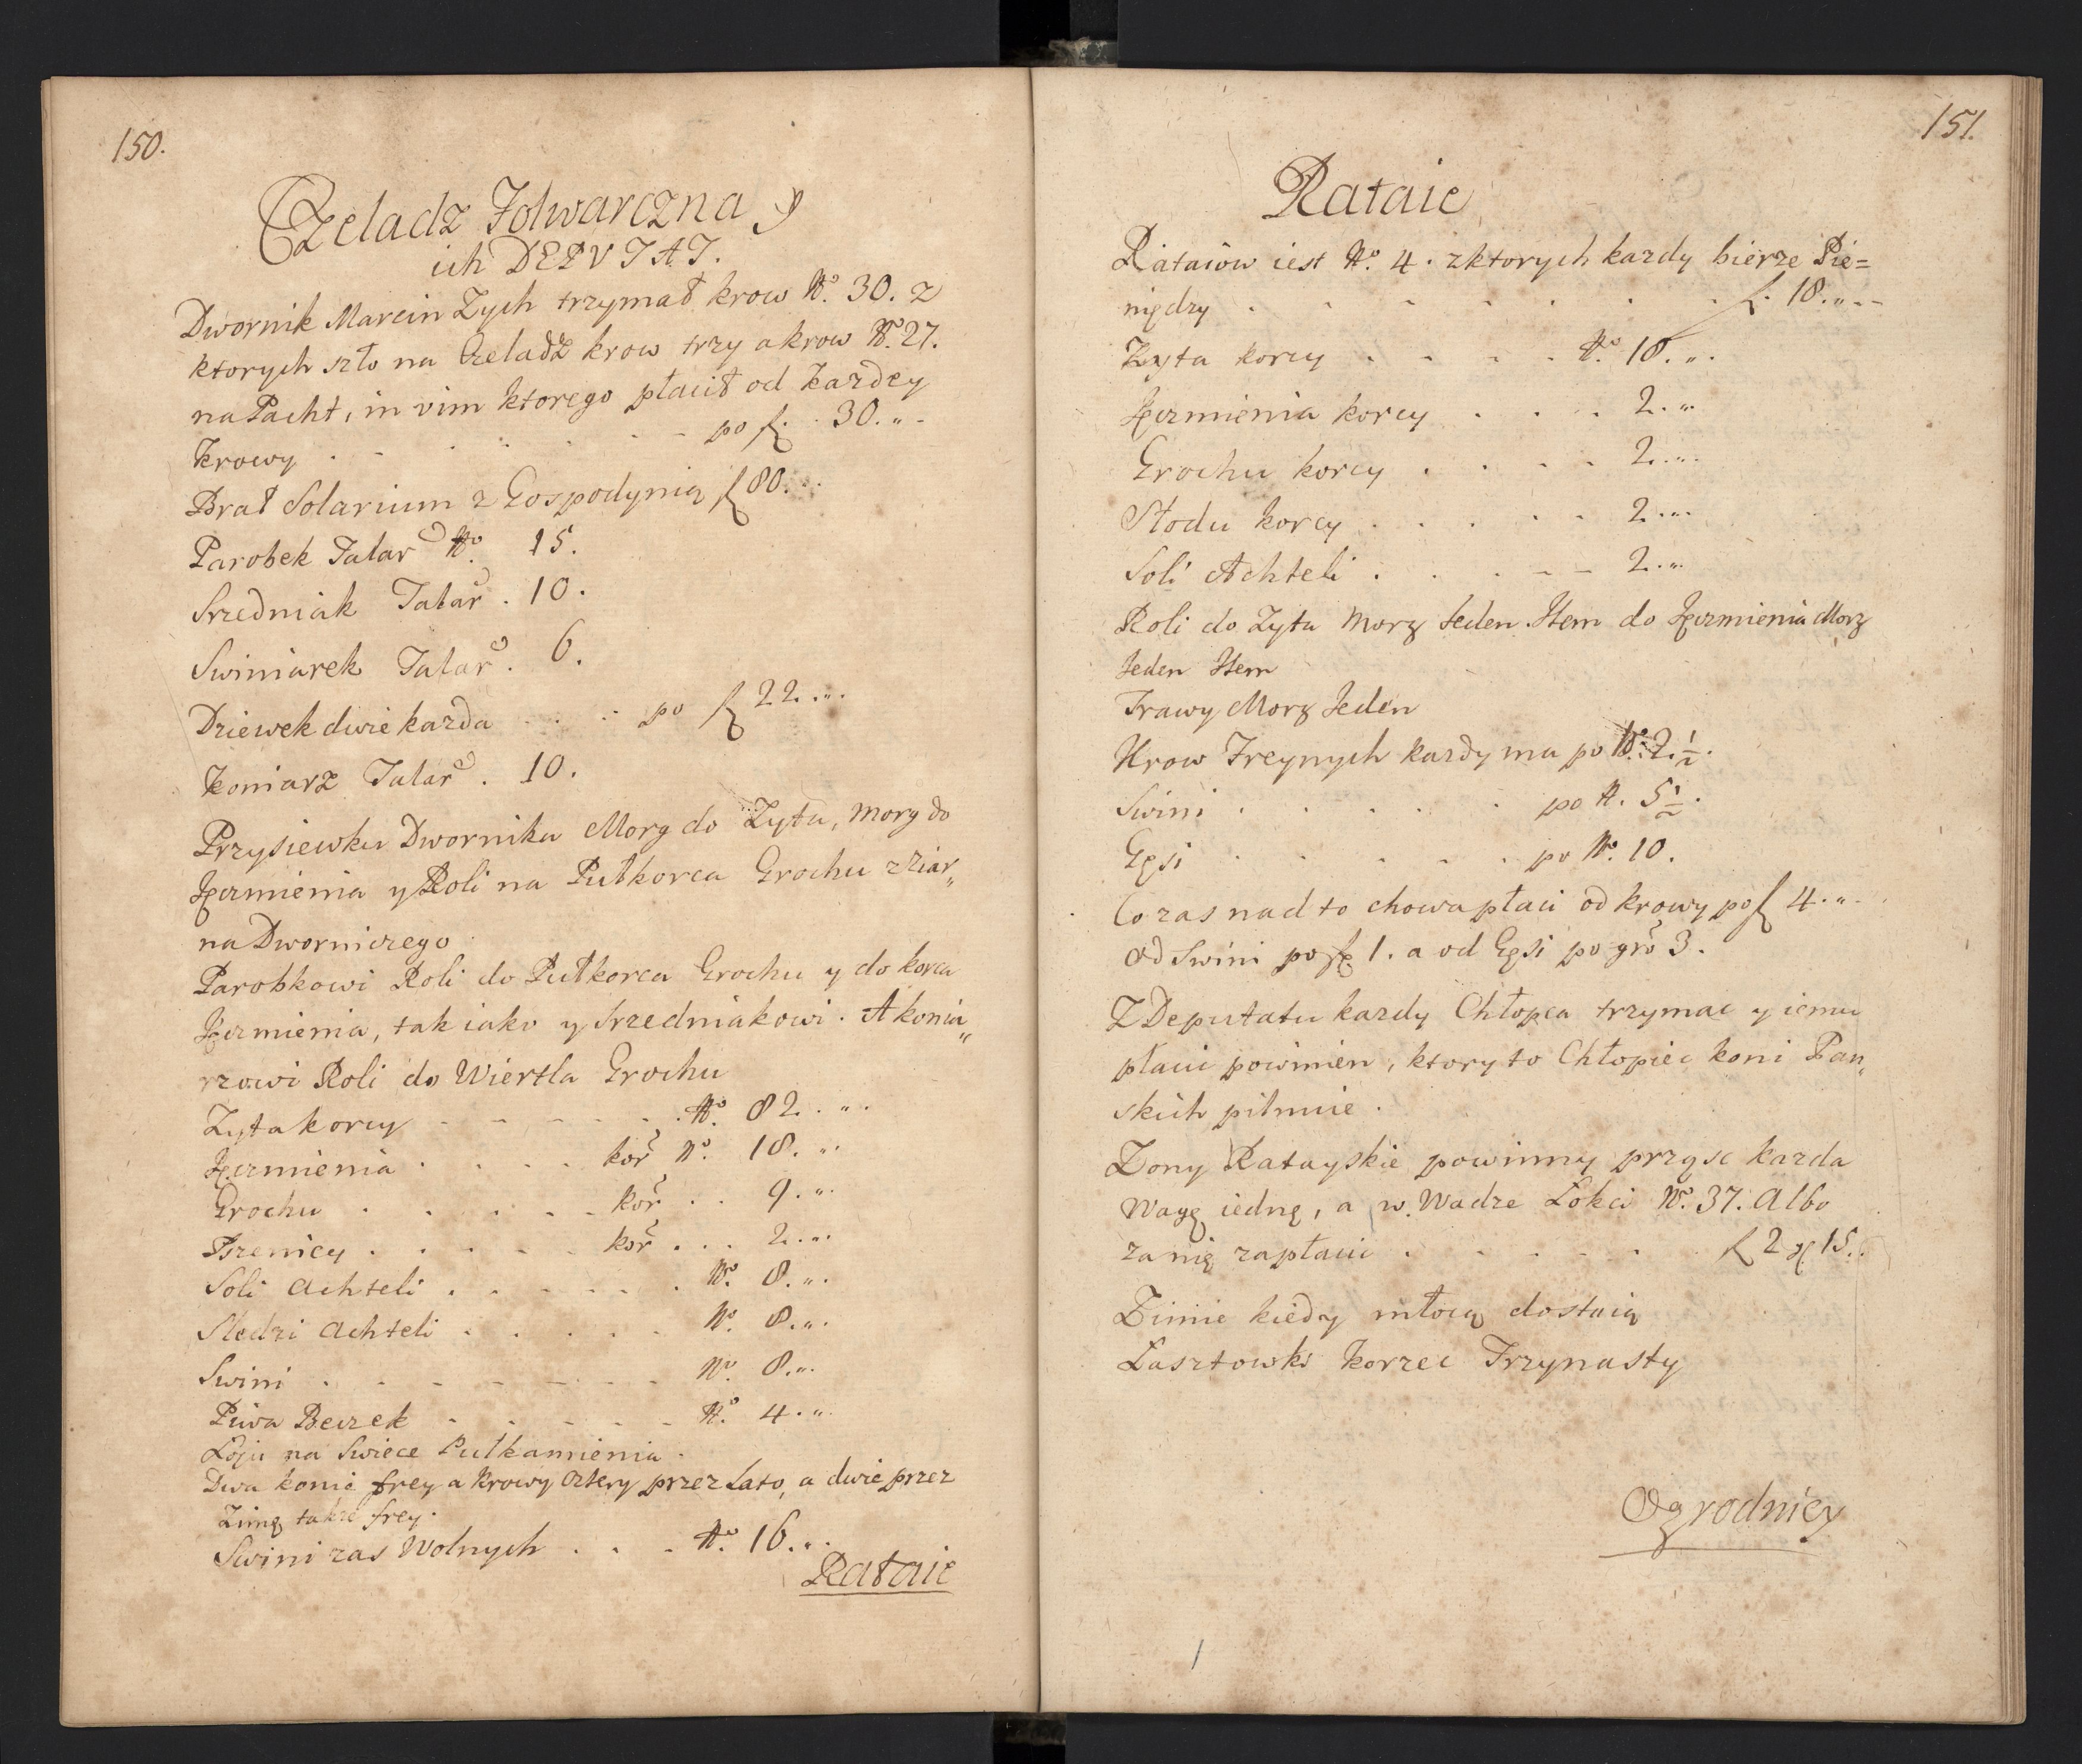 150.
Czeladz Folwarczna y
ich DEPUTAT.
Dwornik Marcin Zych trzymał krow No. 30. z
ktorych szło na Czeladz krow trzy a krow No. 27.
na Pacht, in vim ktorego płacił od Kazdey
Krowy . - . . - - po f. 30.„-
Brał Solarium z Gospodynią f 80...
Parobek Talar No. 15.
Srzedniak Talar . 10.
Swiniarek Talar . 6.
Dziewek dwie kazda . . . po f 22.„.
Koniarz Talar . 10.
Przysiewku Dwornika Morg do Zyta, morg do
Jęczmienia y Roli na Pułkorca Grochu z Ziar„
na Dworniczego
Parobkowi Roli do Pułkorca Grochu y do korca
Jęczmienia, tak iako y Srzedniakowi. A konia„
rzowi Roli do Wiertla Grochu
Zyta korcy - - - - - . No. 82.„.
Jęczmienia . . . . kor No. 18.„.
Grochu . . . . . - kor . . 9.„.
Pszenicy . . . . . kor . . . 2.„.
Soli achteli . . . . . . No. 8.„.
Sledzi achteli . . . . . No. 8.„.
Swini . - - - - - - No. 8.„.
Piwa Beczek - - - - - No. 4.„.
Łoju na Swiece Pułkamienia.
Dwa konie frey a krowy cztery przez Lato, a dwie przez
Zimę takze frey.
Swini zas Wolnych . . . No. 16.„.
Rataie
151.
Rataie
Rataiow iest No. 4. z ktorych kazdy bierze Pie=
niędzy . . - - . . . . f. 18.„--
Zyta korcy . - - . No. 18.„.
Jęczmienia korcy . . . 2.„
Grochu korcy . . . . 2.„.
Słodu korcy . . . . . 2.„.
Soli Achteli . . . - - 2.„
Roli do Zyta Morg Jeden. Item do Jęczmienia Morg
Jeden Item
Trawy Morg Jeden
Krow Freynych kazdy ma po No. 2 1/2.
Swini . . . . . . po No. 5 1/2.
Gęsi . . . . . . po No. 10.
Co zas nad to chowa płaci od krowy po f 4.„.
od Swini po f. 1. a od Gęsi po gro 3.
Z Deputatu kazdy Chłopca trzymac y iemu
płacic powinien, ktory to Chłopiec koni Pan„
skich pilnuie.
Zony Ratayskie powinny prząsc kazda
Wagę iednę, a w Wadze Łokci No. 37. Albo
za nię zapłacic . . . . . . f 2 g 15..
Zimie kiedy młocą dostaią
Łasztowki korzec Trzynasty
Ogrodnicy